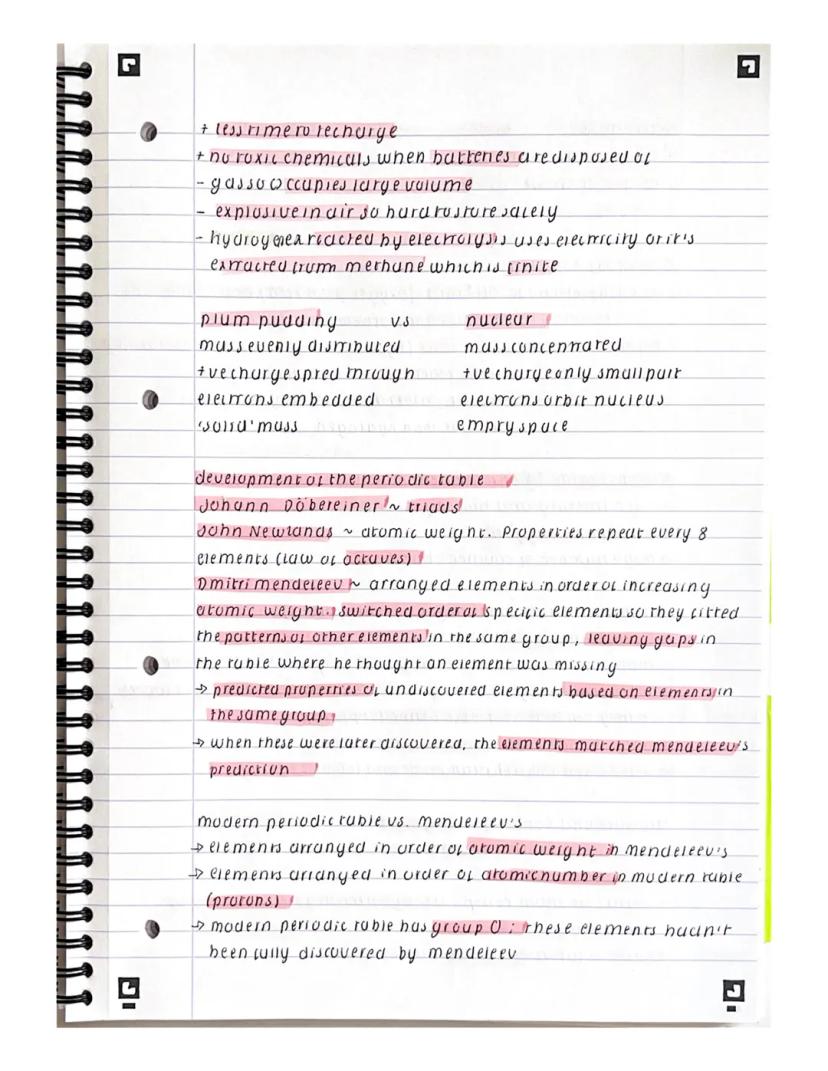 + less time to recharge
+ no toxic chemicals when batteries are disposed of
- gas so occupies large volume
- explosive in air so hard to store safely
- hydrogen extracted by electrolysis uses electricity or it's
extracted from methane which is finite
plum pudding vs nuclear
mass evenly distributed mass concentrated
+ve charge spred through +ve charge only small part
electrons embedded electrons orbit nucleus
'solid' mass empty space
development of the periodic table
Johann Döbereiner ~ triads
John Newlands ~ atomic weight. Properties repeat every 8
elements (law of octaves)
Dmitri mendeleev ~ arranged elements in order of increasing
atomic weight. switched order of specific elements so they fitted
the patterns of other elements in the same group, leaving gaps in
the table where he thought an element was missing
→ predicted properties of undiscovered elements based on elements in
the same group
→ when these were later discovered, the elements matched mendeleev's
prediction
modern periodic table vs. mendeleev's
→ elements arranged in order of atomic weight in mendeleev's
→ elements arranged in order of atomic number in modern table
(protons)
→ modern periodic table has group 0; these elements hadn't
been fully discovered by mendeleev